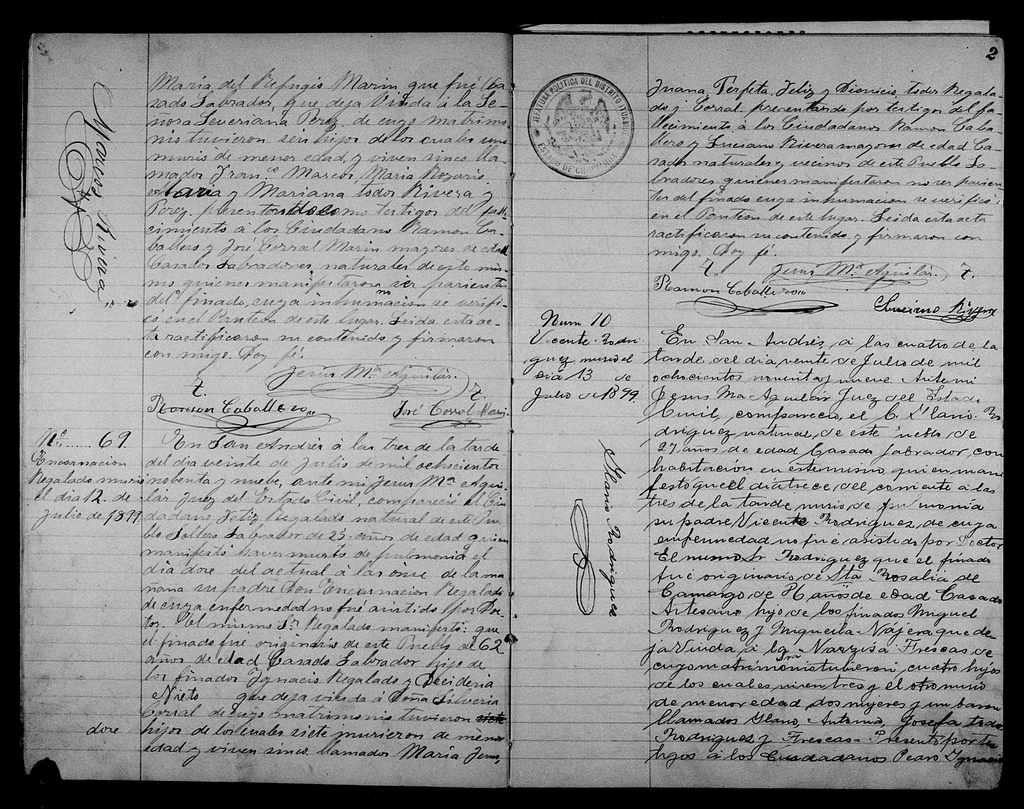 Marcos Rivera
María del Refugio Marin que fué Ca-
sado Labrador, que deja Viuda á la Se-
ñora Severiana Perez de cuyo matrimo-
nio tuvieron seis hijos de los cuales uno
murió de menor edad, y viven sinco lla-
mados Fran.co Marcos, María Rosario,
María y Mariana todos Rivera y
Perez. presentando como testigos del fall-
cimiento á los Ciudadanos Ramon Ca-
ballero y José Corral Marin mayores de edad
Casados Labradores, naturales de este mis-
mo quienes manifestaron ser parientes
del finado, cuya inhumacion se verifi-
có en el Panteon de este lugar. Leida esta ac-
ta ractificaron su contenido y firmaron
con migo. Doy fé.
Jesus Ma. Aguilar.
Ramon Caballero
José Corral Marin
No. 69.
Encarnacion
Regalado murió
el dia 12. de
Julio de 1899.
En San Andrés á las tres de la tarde
del dia veinte de Julio de mil ochocientos
nobenta y nueve, ante mi Jesus Ma. Agui-
lar Juez del Estado Civil, compareció el Ciu-
dadano Feliz Regalado natural de este Pue-
blo Soltero Labrador de 23 años de edad quien
manifestó haver muerto de pulmonia el
dia doce del actual á las once de la ma-
ñana su padre Don Encarnacion Regalado
de cuya enfermedad no fué asistido por Doc-
tor. El mismo Sr. Regalado manifestó: que
el finado fué originario de este Pueblo de 62
años de edad Casado Labrador hijo de
los finados Ignacio Regalado y Decideria
Nieto que deja viuda á Doña Silveria
Corral de cuyo matrimonio tuvieron siete
doce
hijos de los cuales siete murieron de menor
edad y viven sinco, llamados María Jesus,
2
JEFATURA POLITICA DEL DISTRITO
ESTADO DE
Juana Perfeta, Feliz y Dionicio, todos Regala-
do y Corral, presentando por testigos del fa-
llecimiento á los Ciudadanos Ramon Caba-
llero y Luciano Rivera mayores de edad Ca-
sados naturales y vecinos de este Pueblo La-
bradores quienes manifestaron no ser parien-
tes del finado cuya inhumacion se verificó
en el Panteon de este lugar. Leida esta acta
ractificaron su contenido y firmaron con
migo. Doy fé.
Jesus Ma. Aguilar.
Ramon Caballero
Luciano
Num 70
Vicente Rodri-
guez murió el
dia 13 de
Julio de 1899.
Ilario Rodriguez
En San Andrés, á las cuatro de la
tarde del dia veinte de Julio de mil
ochocientos noventa y nueve. Ante mi
Jesus Ma. Aguilar Juez del Estado
Civil, comparecio, el C. Ilario Ro-
driguez natural de este Pueblo de
27 años de edad Casado Labrador, con
habitacion en este mismo quien mani-
festo que el dia trece, del corriente á las
tres de la tarde, murio de pulmonia
su padre Vicente Rodriguez, de cuya
enfermedad no fué asistido por Doctor
El mismo Sr. Rodriguez que el finado
fué originario de Sta. Rosalia de
Camargo de años de edad Casado
Artesano hijo de los finados Miguel
Rodriguez y Miquela Najera que de-
ja Viuda á la Sra Narzisa Frescas de
cuyo matrimonio tubieron cuatro hijos
de los cuales viven tres y el otro murio
de menor edad, dos mujeres y un baron
llamados Ilario, Antonia, Josefa todos
Rodriguez y Frescas. Presentó por tes-
tigos á los Ciudadanos Pedro Ignacio